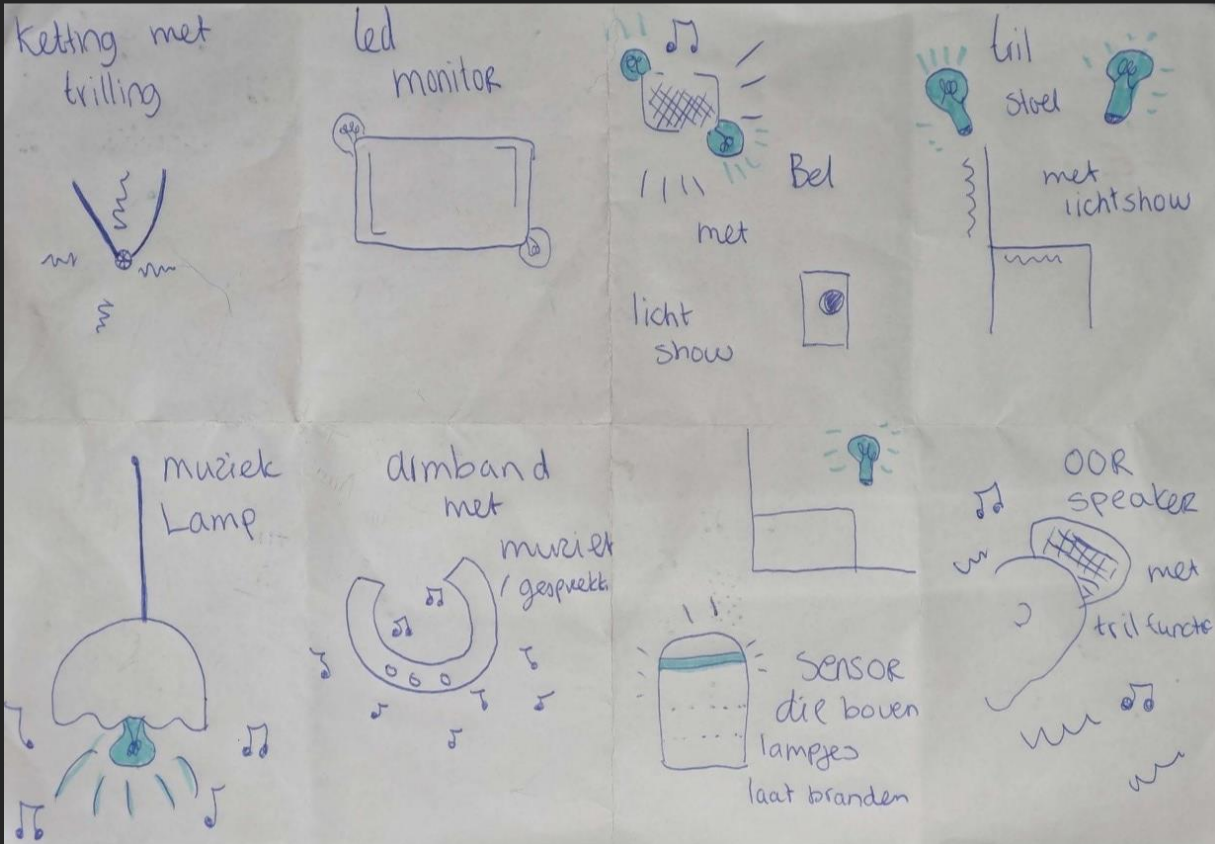 ketting met
trilling
led
monitor
Bel
met
licht
show
tril
stoel
met
lichtshow
muziek
Lamp
armband
met
muziek
/gesprekk
sensor
die boven
lampjes
laat branden
OOR
speaker
met
tril functie